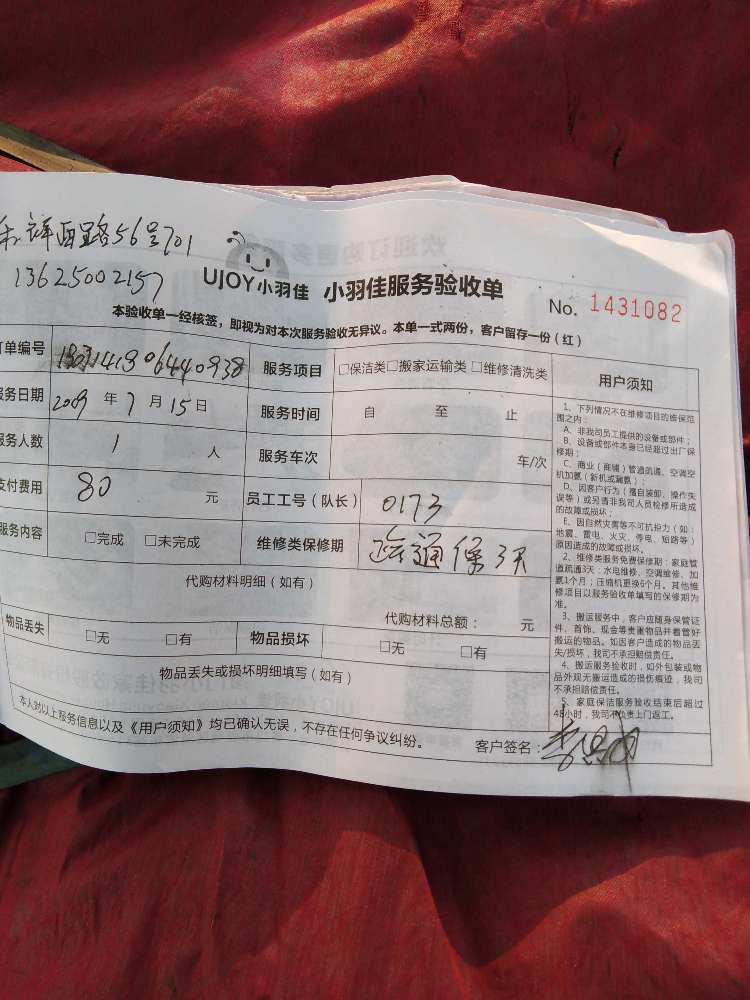 祥西路56号701
13625002157
UJOY小羽佳 小羽佳服务验收单
No. 1431082
本验收单一经核签，即视为对本次服务验收无异议。本单一式两份，客户留存一份（红）
订单编号 服务项目 □保洁类□搬家运输类 □维修清洗类
服务日期 2019 年 7 月 15 日 服务时间 自 至 止
服务人数 1 人 服务车次 车/次
支付费用 80 元 员工工号（队长） 0173
服务内容 □完成 □未完成 维修类保修期 疏通保3天
代购材料明细（如有）
代购材料总额： 元
物品丢失 □无 □有 物品损坏 □无 □有
物品丢失或损坏明细填写（如有）
本人对以上服务信息以及《用户须知》均已确认无误，不存在任何争议纠纷。 客户签名：
用户须知
1、下列情况不在维修项目的维保范
围之内：
A、非我司员工提供的设备或部件；
B、设备或部件本身已经超过出厂保
修期；
C、商业（商铺）管道疏通、空调空
机加氨（新机或漏氨）；
D、因客户行为（擅自装卸、操作失
误等）或另请非我司人员检修所造成
的故障或损坏；
E、因自然灾害等不可抗拒力（如：
地震、雷电、火灾、停电、短路等）
原因造成的故障或损坏。
2、维修类服务免费保修期：家庭管
道疏通3天；水电维修、空调维修、加
氨1个月；压缩机更换6个月。其他维
修项目以服务验收单填写的保修期为
准。
3、搬运服务中，客户应随身保管证
件、首饰、现金等贵重物品并看管好
搬运的物品。如因客户造成的物品丢
失/损坏，我司不承担赔偿责任。
4、搬运服务验收时，如外包装或物
品外观无搬运造成的损伤痕迹，我司
不承担赔偿责任。
5、家庭保洁服务验收结束后超过
48小时，我司不负责上门返工。